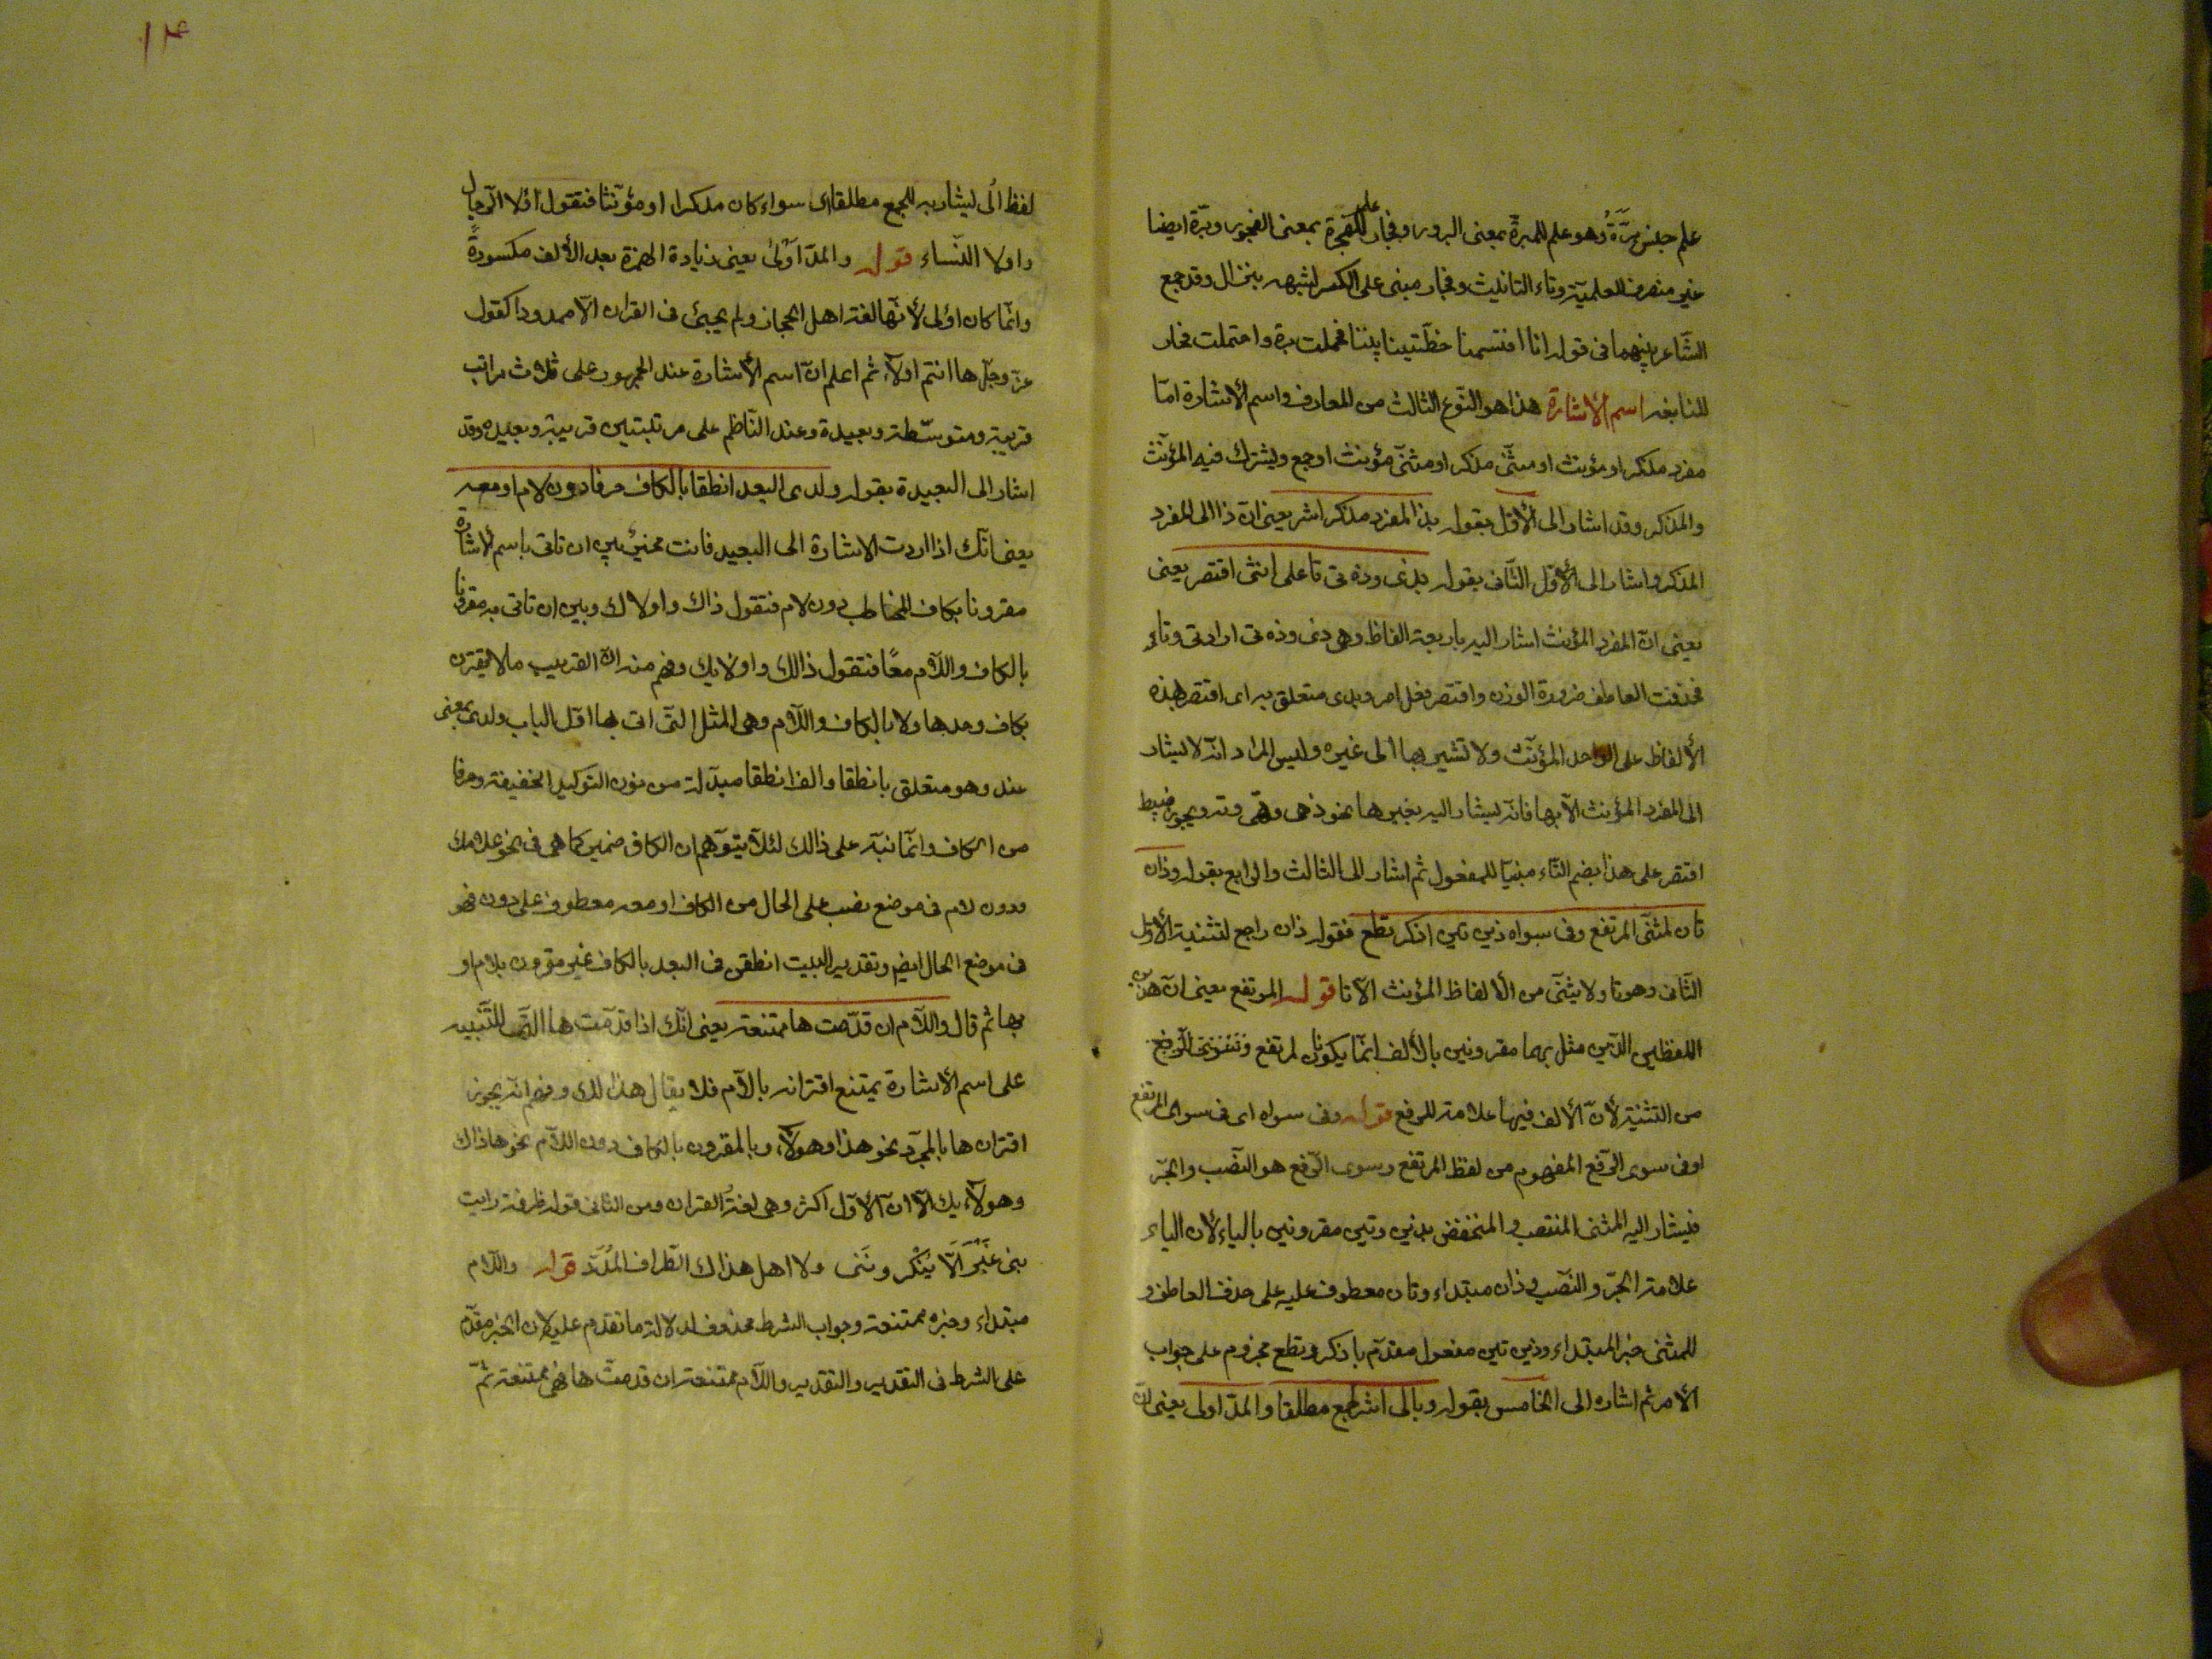 علم جنس برّة وهو علم للمبرة بمعنى البرور وفجار علم للفجرة بمعنى الفجور وبرّة ايضا
غير منصرف للعلمية وتاء التانيث وفجار مبنى على الكسر لشبهه بنزال وقد جمع
الشّاعر بينهما فى قوله انا اقتسمنا خطّتينا بيننا فحملت برة واحتملت فجار
للنابغه اسم الأشارة هذا هو النّوع الثالث من المعارف واسم الأشارة امّا
مفرد مذكر او مؤنث او مثنّى مذكر او مثنّى مؤنث او جمع ويشترك فيه المؤنّث
والمذكر وقد اشار الى الأوّل بقوله بذا لمفرد مذكر اشر يعنى انّ ذا الى المفرد
المذكر واشار الى الأوّل الثّانى بقوله بذى وذه تى تا على انثى اقتصر يعنى
يعنى انّ المفرد المؤنث اشار اليه باربعة الفاظ وهى ذى وذه تى اراد تى وتاء
فحذفت العاطف ضرورة الوزن واقتصر فعل امر وبذى متعلق به اى اقتصر بهذه
الألفاظ على الواحد المؤنّث ولا تشير بها الى غيره وليس المراد انّه لا يشار
الى المفرد المؤنث الّا بها فانّه يشار اليه بغيرها نحو ذهى وتهى وته ويجوز ضبط
اقتصر على هذا بضم التّاء مبنيا للمفعول ثم اشار الى الثالث والرابع بقوله وذان
تان لمثنّى المرتفع وفى سواه ذين تين اذكر تطع فقوله ذان راجع لتثنية الأوّل
الثّانى وهو تا ولا يثنّى من الألفاظ المؤنث الّا تا قوله المرتفع يعنى انّ هذين
اللفظين الذين مثل بهما مقرونين بالألف انّما يكونان لمرتفع الرّفع
من التثنية لأنّ الألف فيها علامة للرفع قوله وفى سواه اى فى سوى المرتفع
او فى سوى الرّفع المفهوم من لفظ المرتفع وسوى الرّفع هو النّصب والجرّ
فيشار اليه المثنى المنتصب والمنخفض بذين وتين مقرونين بالياء لأن الياء
علامة الجرّ والنّصب وذان مبتداء وتان معطوف عليه على حذف العاطف و
للمثنى خبر المبتداء وذين تين مفعول مقدّم باذكر وتطع مجزوم على جواب
الأمر ثم اشاره الى الخامس بقوله وبالى اشر لجمع مطلقا والمدّ اولى يعنى انّ
لفظ الى يشار به للجمع مطلقا اى سواء كان مذكرا او مؤنّثا فتقول اولا الرّجال
واولا النّساء قوله والمدّ اَوْلىٰ يعنى زيادة الهمزة بعد الألف مكسورة
وانّما كان اولى لأنّها لغة اهل الحجاز ولم يجئ فى القران الّا ممدودا كقوله
عزّ وجلّ ها انتم اولآء ثم اعلم انّ اسم الأشارة عند الجمهور على ثلاث مراتب
قريبة ومتوسّطة وبعيدة وعند النّاظم على مرتبتين قريبة وبعيده وقد
اشار الى البعيدة بقوله ولدى البعد انطقا بالكاف حرفا دون لام او معه
يعنى انّك اذا اردت الاشارة الى البعيد فانت مخيّر بين ان تاتى باسم الأشارة
مقرونا بكاف المخاطب دون لام فتقول ذاك واولاك وبين ان تاتى به مقرونا
بالكاف واللّام معًا فتقول ذالك واولايك وفهم منه انّ القريب ما لا يقترن
بكاف وحدها ولا بالكاف واللّام وهى المثل التى اتى بها اوّل الباب ولدى بمعنى
عند وهو متعلق بانطقا والف انطقا مبدلة من نون التوكيد الخفيفة وحرفا
من الكاف وانّما نبّه على ذالك لئلّا يتوّهم ان الكاف ضمير كما هى فى نحو غلامك
ودون لام فى موضع نصب على الحال من الكاف او معه معطوف على دون فهو
فى موضع الحال ايضا وتقدير البيت انطقن فى البعد بالكاف غير مقرون بلام او
بها ثم قال واللّام ان قدّمت ها ممتنعة يعنى انّك اذا قدّمت ها الّتى للتّنبيه
على اسم الأشارة يمتنع اقترانه باللّام فلا يقال هذا لك وفهم انّه يجوز
اقتران ها بالمجرّد نحو هذا وهولآء وبالمقرون بالكاف دون اللّام نحو هاذاك
وهولآيك الّا انّ الأوّل اكثر وهى لغة القران ومن الثانى قوله طرفة رايت
بنى غَبْرَآءَ لا يُنْكِرونَنى ولا اهل هذاك الطّراف المُمَدَّد قوله واللّام
مبتداء وخبره ممتنعة وجواب الشرط محذوف لدلالة ما تقدم عليه لان الخبر مقدّم
على الشرط فى التقدير والتقدير واللّام ممتنعة ان قدمتّ ها فهى ممتنعة ثمّ
١٤